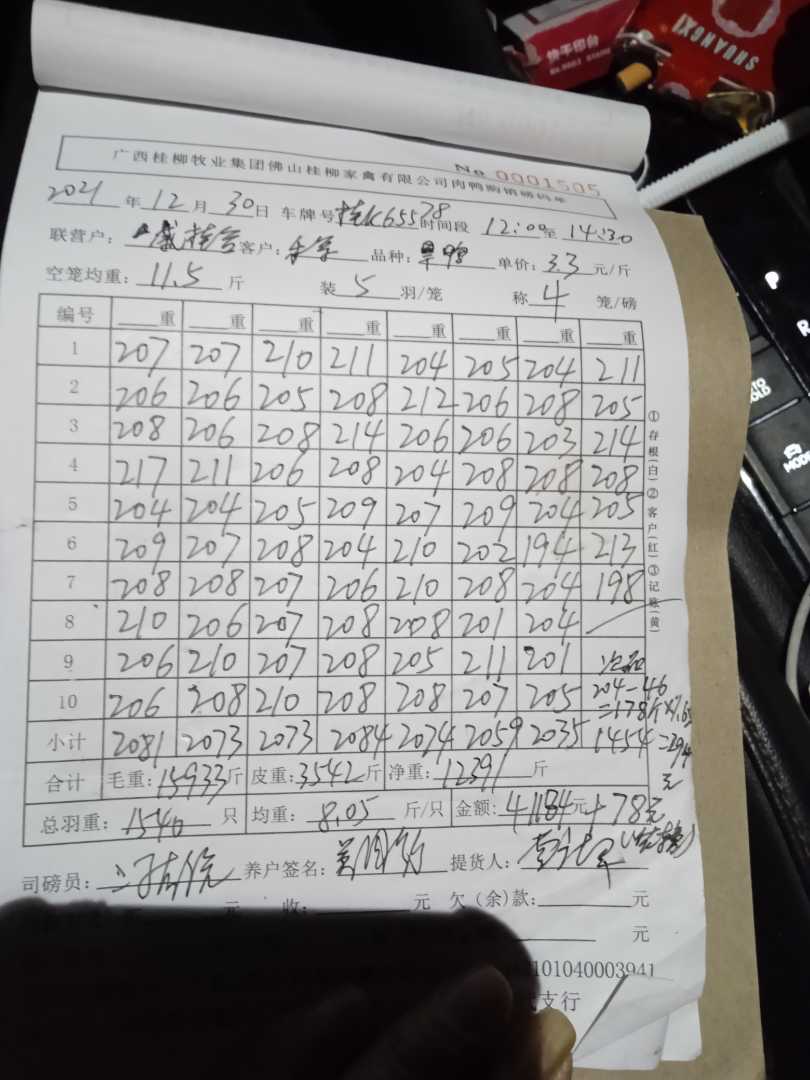 快干印台
SHUANGXI
广西桂柳牧业集团佛山桂柳家禽有限公司肉鸭购销磅码单 No 0001505
2021 年 12 月 30 日 车牌号 桂K65578 时间段 12:00 至 14:30
联营户: 客户: 品种: 单价: 3.3 元/斤
空笼均重: 11.5 斤 装 5 羽/笼 称 4 笼/磅
编号 重 重 重 重 重 重 重 重
1 207 207 210 211 204 205 204 211
2 206 206 205 208 212 206 208 205
3 208 206 208 214 206 206 203 214
4 217 211 206 208 204 208 208 208
5 204 204 205 209 207 209 204 205
6 209 207 208 204 210 202 194 213
7 208 208 207 206 210 208 204 198
8 210 206 207 208 208 201 204
9 206 210 207 208 205 211 201
10 206 208 210 208 208 207 205 204-46
小计 2081 2073 2073 2084 2074 2059 2035 1454
合计 毛重: 15933 斤 皮重: 3542 斤 净重: 12391 斤
总羽重: 1540 只 均重: 8.05 斤/只 金额: 41184元+78元
司磅员: 养户签名: 提货人:
元 收: 元 欠(余)款: 元
元
101040003941
支行
①存根(白)②客户(红)③记账(黄)
P
R
HOLD
MODE